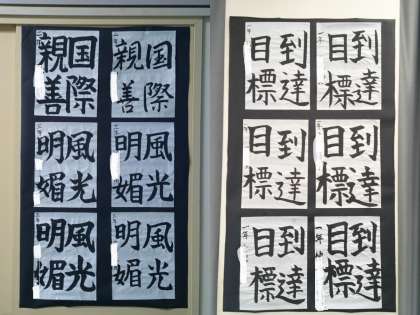 国際
親善
国際
親善
風光
明媚
風光
明媚
風光
明媚
風光
明媚
到達
目標
一年
到達
目標
一年
到達
目標
到達
目標
到達
目標
一年
到達
目標
一年